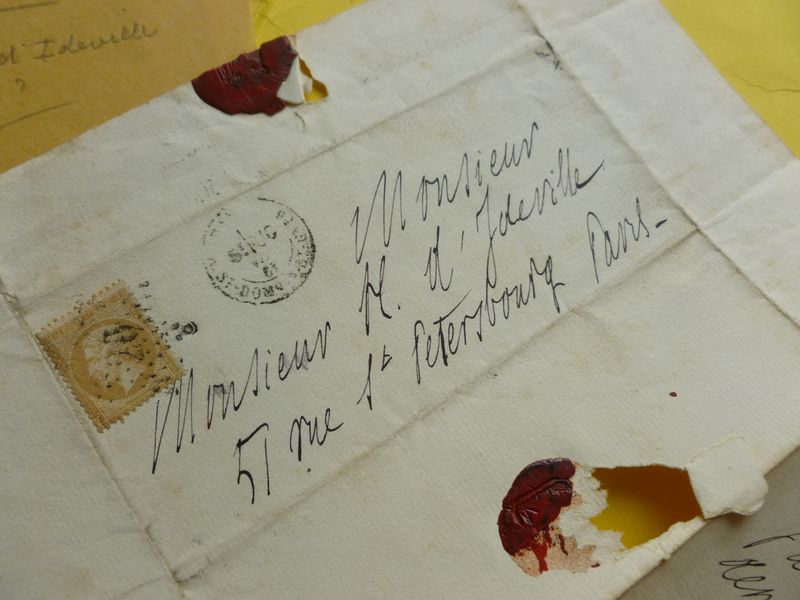 d'Ideville
?
Monsieur
Monsieur H. d'Ideville
51 rue St Petersbourg Paris-
20